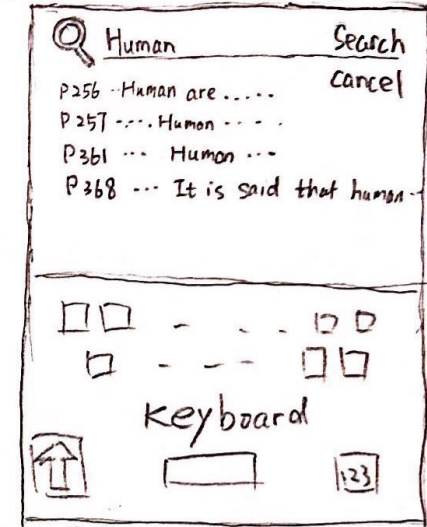 Human Search
Cancel
P256 --Human are .....
P257 -.-. Human - - - .
P361 --- Human ---
P368 --- It is said that human--
Keyboard
123